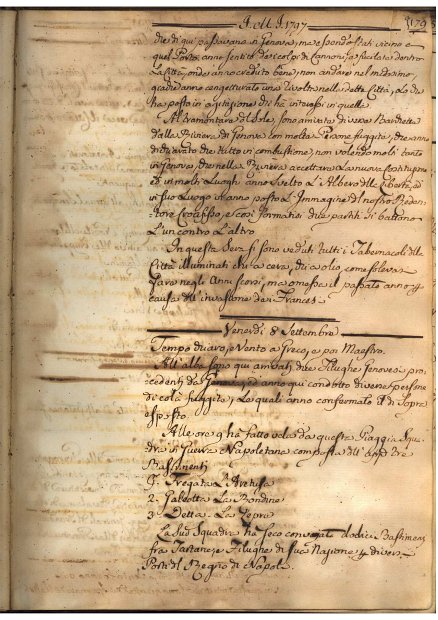 A. M. 1797
179
che di qui passavano in Genova, ma essendo stati vicino a
quel Porto, anno sentito dei colpi di Cannone, la fucilata dentro
La Città, onde anno creduto bene, non andare nel medesimo,
quali anno congetturato una rivolta nella detta Città, Lo che
ha posto in agitazione chi ha interessi in quelle.
Al tramontare del Sole, sono arrivate diverse Barchette
dalla Riviera di Genova con molte Persone fuggite, che anno
dichiarato che tutto in combustione, non volendo molti tanto
in Genova, che nella Riviera accettare La nuova Costituzione
ed in molti Luoghi anno svelto L'Albero della Libertà, ed
in suo Luogo v'anno posto L'Immagine del nostro Reden-
tore Crocifisso, e così formatisi due partiti si battono
L'un contro L'altro.
In questa Sera si sono veduti tutti i Tabernacoli della
Città illuminati chi a cera, chi a olio, come solevasi
fare negli Anni scorsi, ma omesse il passato anno p
causa dell'invasione dei Francesi.
Venerdi 8 Settembre
Tempo chiaro, e Vento a Greco, e poi Maestro.
All'alba sono qui arrivati due Filughe Genovesi pro-
cedenti da Genova, ed anno qui condotto diverse persone
di colà fuggite, Le quali anno confermato il di sopra
esposto.
Alle ore 9 ha fatto vela da questa Piaggia Squa
dra di Guerra Napoletana composta dell'
Bastimenti
Fregata L'Aretusa
2. Galeotta La Rondine
3. Detta La Lepre
La Sud.a Squadra ha seco dodici Bastimen
fra Tartane, e Filughe di sua Nazione p diversi
Porti del Regno di Napoli